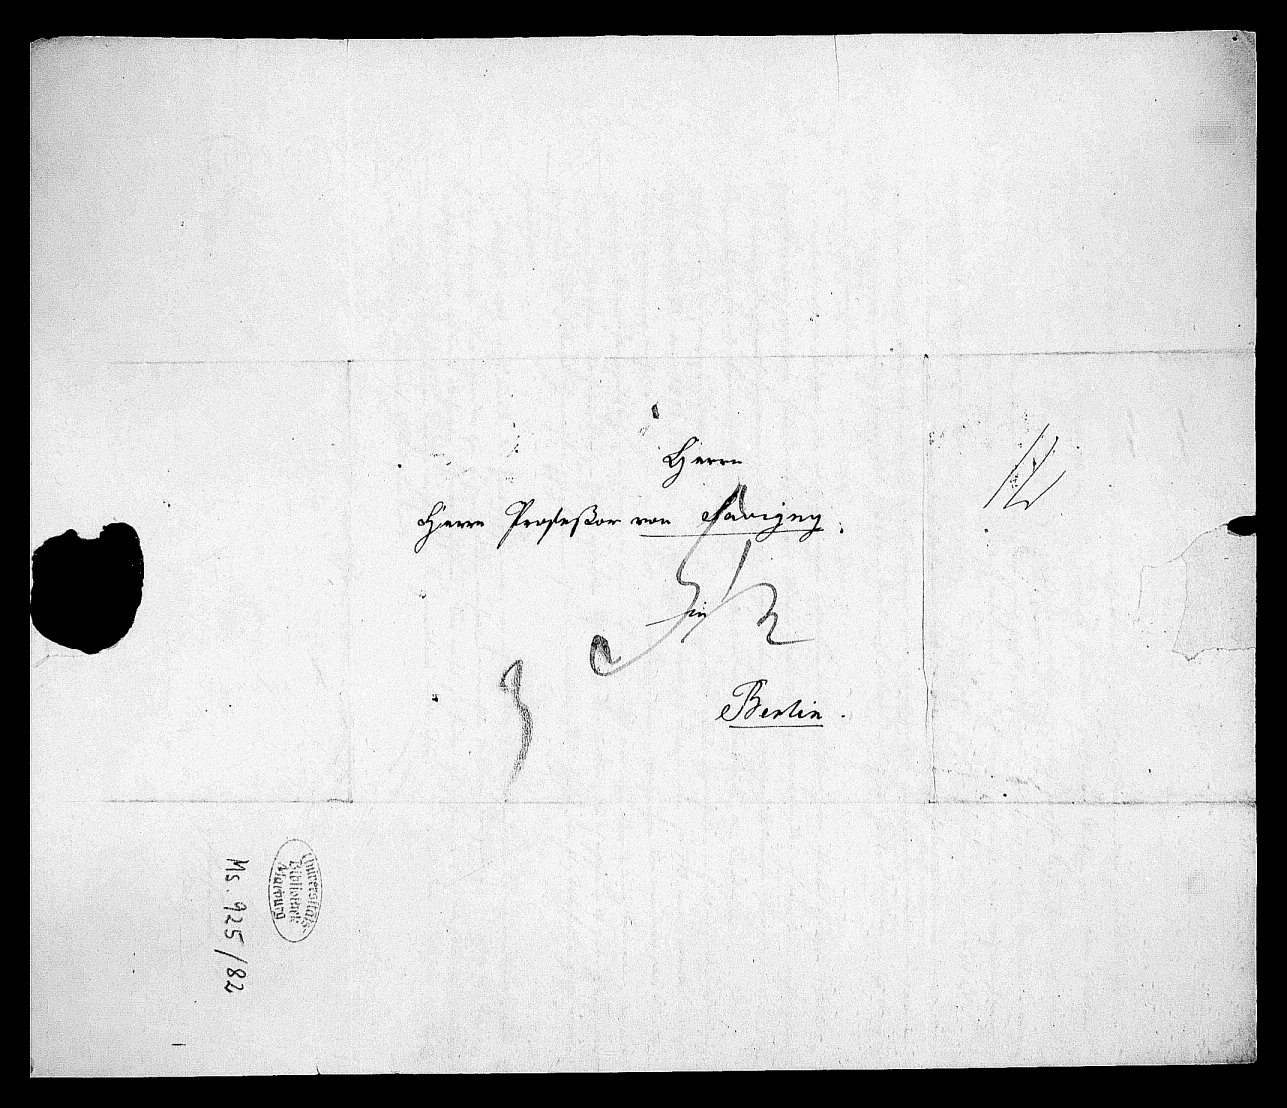 Herrn
Herrn Profeßor von Savigny.
in
Berlin.
Universitäts-
Bibliothek
Marburg
Ms. 925/82